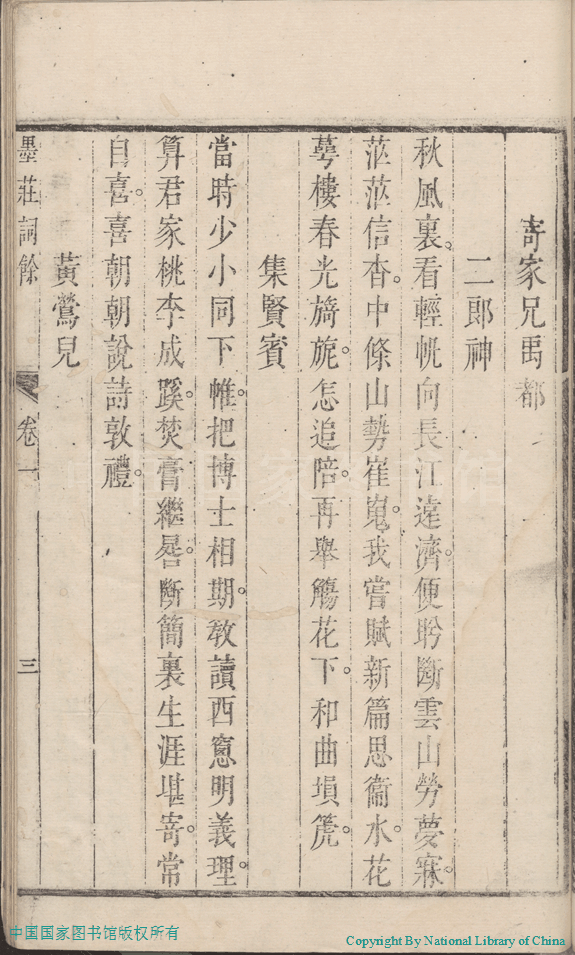 寄家兄禹都
二郎神
秋風裏。看輕帆向長江遠濟。便盻斷雲山勞夢寐。
茫茫信杳。中條山勢崔嵬。我嘗賦新篇思衞水。花
萼樓春光旖旎。怎追陪。再舉觴花下。和曲塤箎。
集賢賓
當時少小同下帷。把博士相期。教讀西窻明義理。
算君家桃李成蹊。焚膏繼晷。斷簡裏生涯堪寄。常
自喜。喜朝朝說詩敦禮。
黃鶯兒
墨莊詞餘 卷一 三
中国国家图书馆版权所有
Copyright By National Library of China